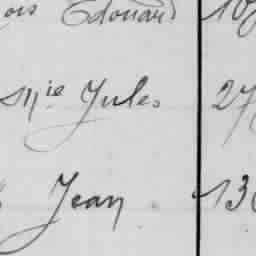 Edouard 10
Mie Jules 27
Jean 13